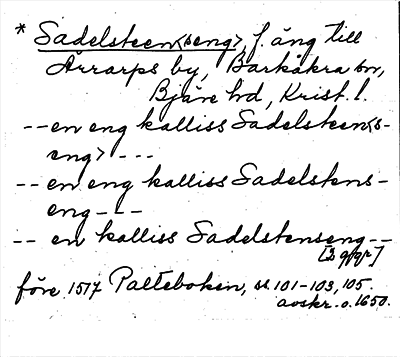 * Sadelsteen<seng>, f. äng till
Årrarps by, Barkåkra sn,
Bjäre hd, Krist. l.
-- en eng kalliss Sadelsteen<s-
eng> ---
-- en eng kalliss Sadelstens-
eng ---
-- en kalliss Sadelstenseng --
[3 ggr]
före 1517 Palteboken, ss. 101-103, 105.
avskr. o. 1650.